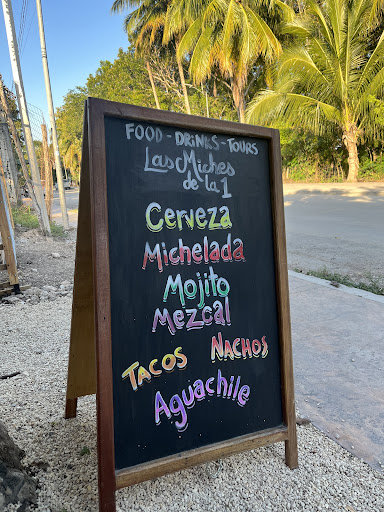 FOOD - DRINKS - TOURS
Las Miches
de-la 1
Cerveza
Michelada
Mojito
Mezcal
Tacos Nachos
Aguachile